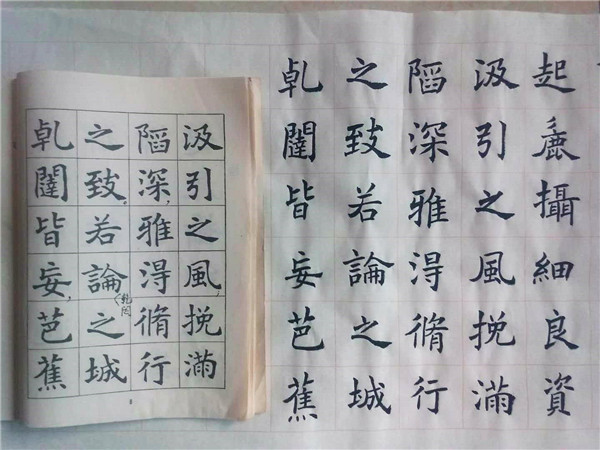 起麁攝細良資
汲引之風挽滿
䧟深雅淂脩行
之致若論之城
乹闥皆妄芭蕉
汲引之風挽滿
䧟深雅淂脩行
之致若論之城
乹闥皆妄芭蕉